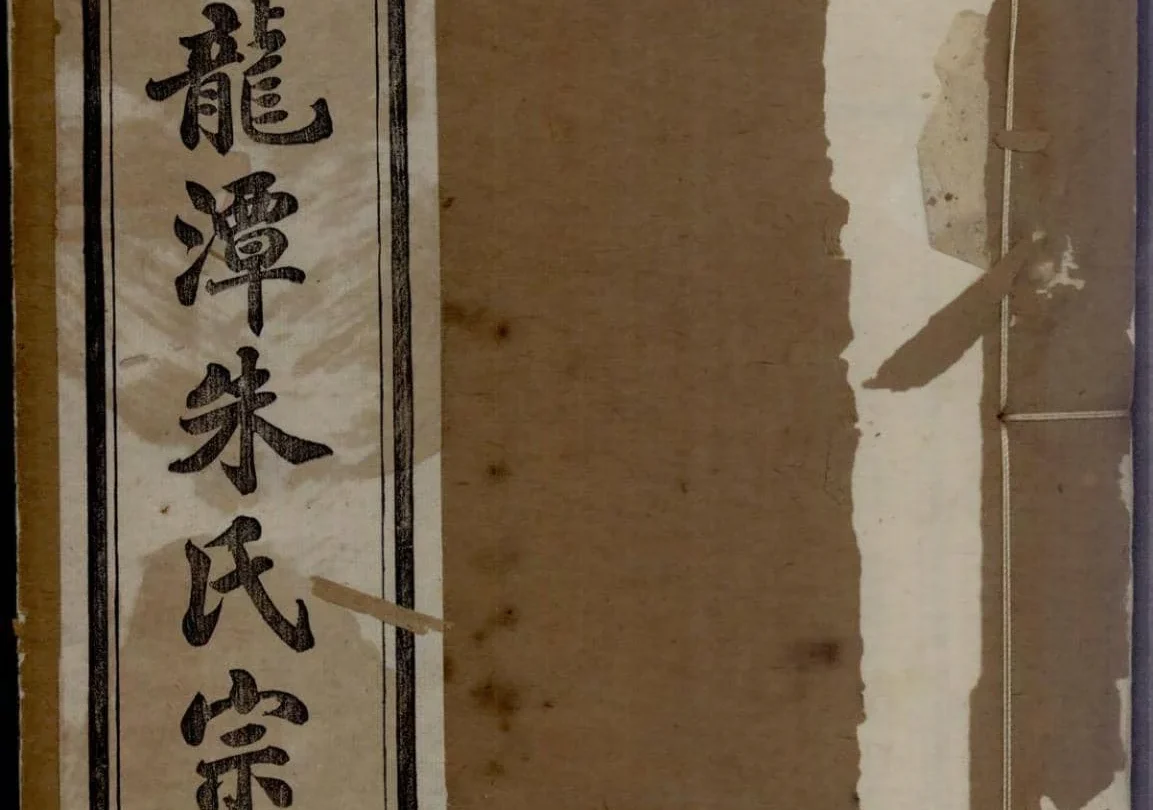 龍潭朱氏宗